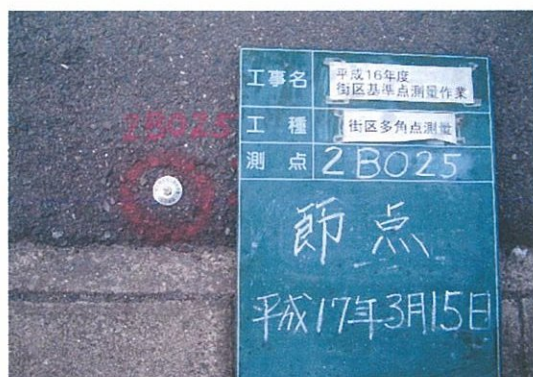 2B025
工事名
平成16年度
街区基準点測量作業
工種
街区多角点測量
測点
2B025
節点
平成17年3月15日